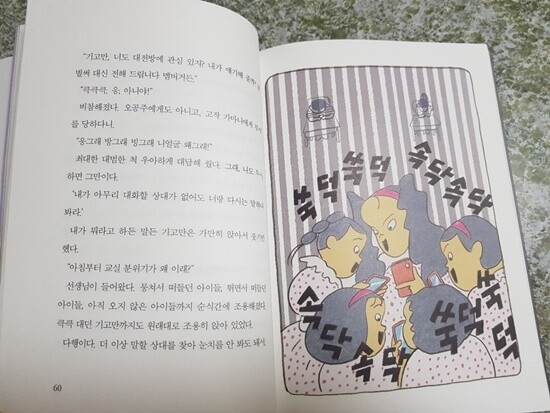 "거고만, 너도 대전방에 관심 있지? 내가 얘기해
벌써 대신 전해 드립니다 멤버거든."
"큭큭큭, 웅, 아니야!"
비참해졌다. 오공주에게도 아니고, 고작 가마니에게
를 당하다니.
"웅그래 방그래 빙그래 니얼굴 왜그래!"
최대한 대범한 척 우아하게 대답해 줬다. 그래, 나도
하면 그만이다.
'내가 아무리 대화할 상대가 없어도 너랑 다시는 말해
봐라.'
내가 뭐라고 하든 말든 기고만은 가만히 앉아서 웃기만
했다.
"아침부터 교실 분위기가 왜 이래?"
선생님이 들어왔다. 뭉쳐서 떠들던 아이들, 뛰면서 떠들던
아이들, 아직 오지 않은 아이들까지 순식간에 조용해졌다.
큭큭 대던 기고만까지도 원래대로 조용히 앉아 있었다.
다행이다. 더 이상 말할 상대를 찾아 눈치를 안 봐도 돼서
60
쑥덕쑥덕
속닥속닥
속닥속닥
쑥덕